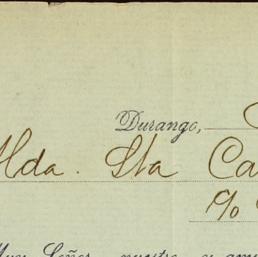 Durango,
Hda. Sta Ca
c/o
Muy Señor nuestro y am